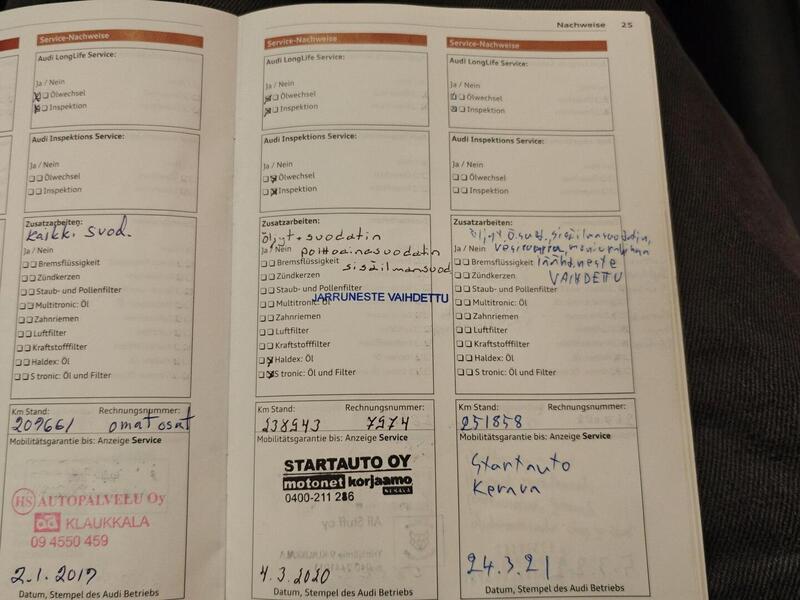 Nachweise 25
Service-Nachweise
Audi LongLife Service:
Ja / Nein
Ölwechsel
Inspektion
Audi Inspektions Service:
Ja / Nein
Ölwechsel
Inspektion
Zusatzarbeiten:
Kaikk. suod.
Ja / Nein
Bremsflüssigkeit
Zündkerzen
Staub- und Pollenfilter
Multitronic: Öl
Zahnriemen
Luftfilter
Kraftstofffilter
Haldex: Öl
S tronic: Öl und Filter
Km Stand: Rechnungsnummer:
209661 omat osat
Mobilitätsgarantie bis: Anzeige Service
HS AUTOPALVELU Oy
ad KLAUKKALA
09 4550 459
2.1.2017
Datum, Stempel des Audi Betriebs
Service-Nachweise
Audi LongLife Service:
Ja / Nein
Ölwechsel
Inspektion
Audi Inspektions Service:
Ja / Nein
Ölwechsel
Inspektion
Zusatzarbeiten:
Öljyt + suodatin
Ja / Nein polttoainesuodatin
Bremsflüssigkeit sisäilmansuod
Zündkerzen
Staub- und Pollenfilter
JARRUNESTE VAIHDETTU
Multitronic: Öl
Zahnriemen
Luftfilter
Kraftstofffilter
Haldex: Öl
S tronic: Öl und Filter
Km Stand: Rechnungsnummer:
238543 7574
Mobilitätsgarantie bis: Anzeige Service
STARTAUTO OY
motonet korjaamo
KERAVA
0400-211 286
4.3.2020
Datum, Stempel des Audi Betriebs
Service-Nachweise
Audi LongLife Service:
Ja / Nein
Ölwechsel
Inspektion
Audi Inspektions Service:
Ja / Nein
Ölwechsel
Inspektion
Zusatzarbeiten:
Öljyt, Ö.suod, sisäilmansuodatin,
Ja / Nein vesipumppu, moniurahihna
Bremsflüssigkeit jäähd.neste
Zündkerzen VAIHDETTU
Staub- und Pollenfilter
Multitronic: Öl
Zahnriemen
Luftfilter
Kraftstofffilter
Haldex: Öl
S tronic: Öl und Filter
Km Stand: Rechnungsnummer:
251858
Mobilitätsgarantie bis: Anzeige Service
Startauto
Kerava
24.3.21
Datum, Stempel des Audi Betriebs